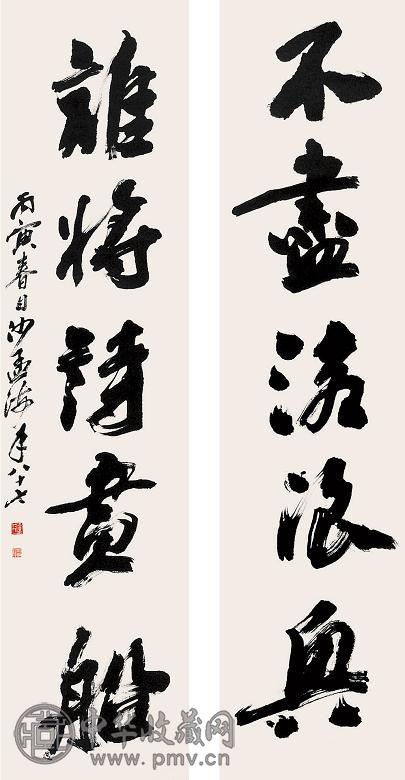 不盡滄浪興
誰將詩畫船
丙寅春日沙孟海年八十七
中华收藏网
www.pmv.cn